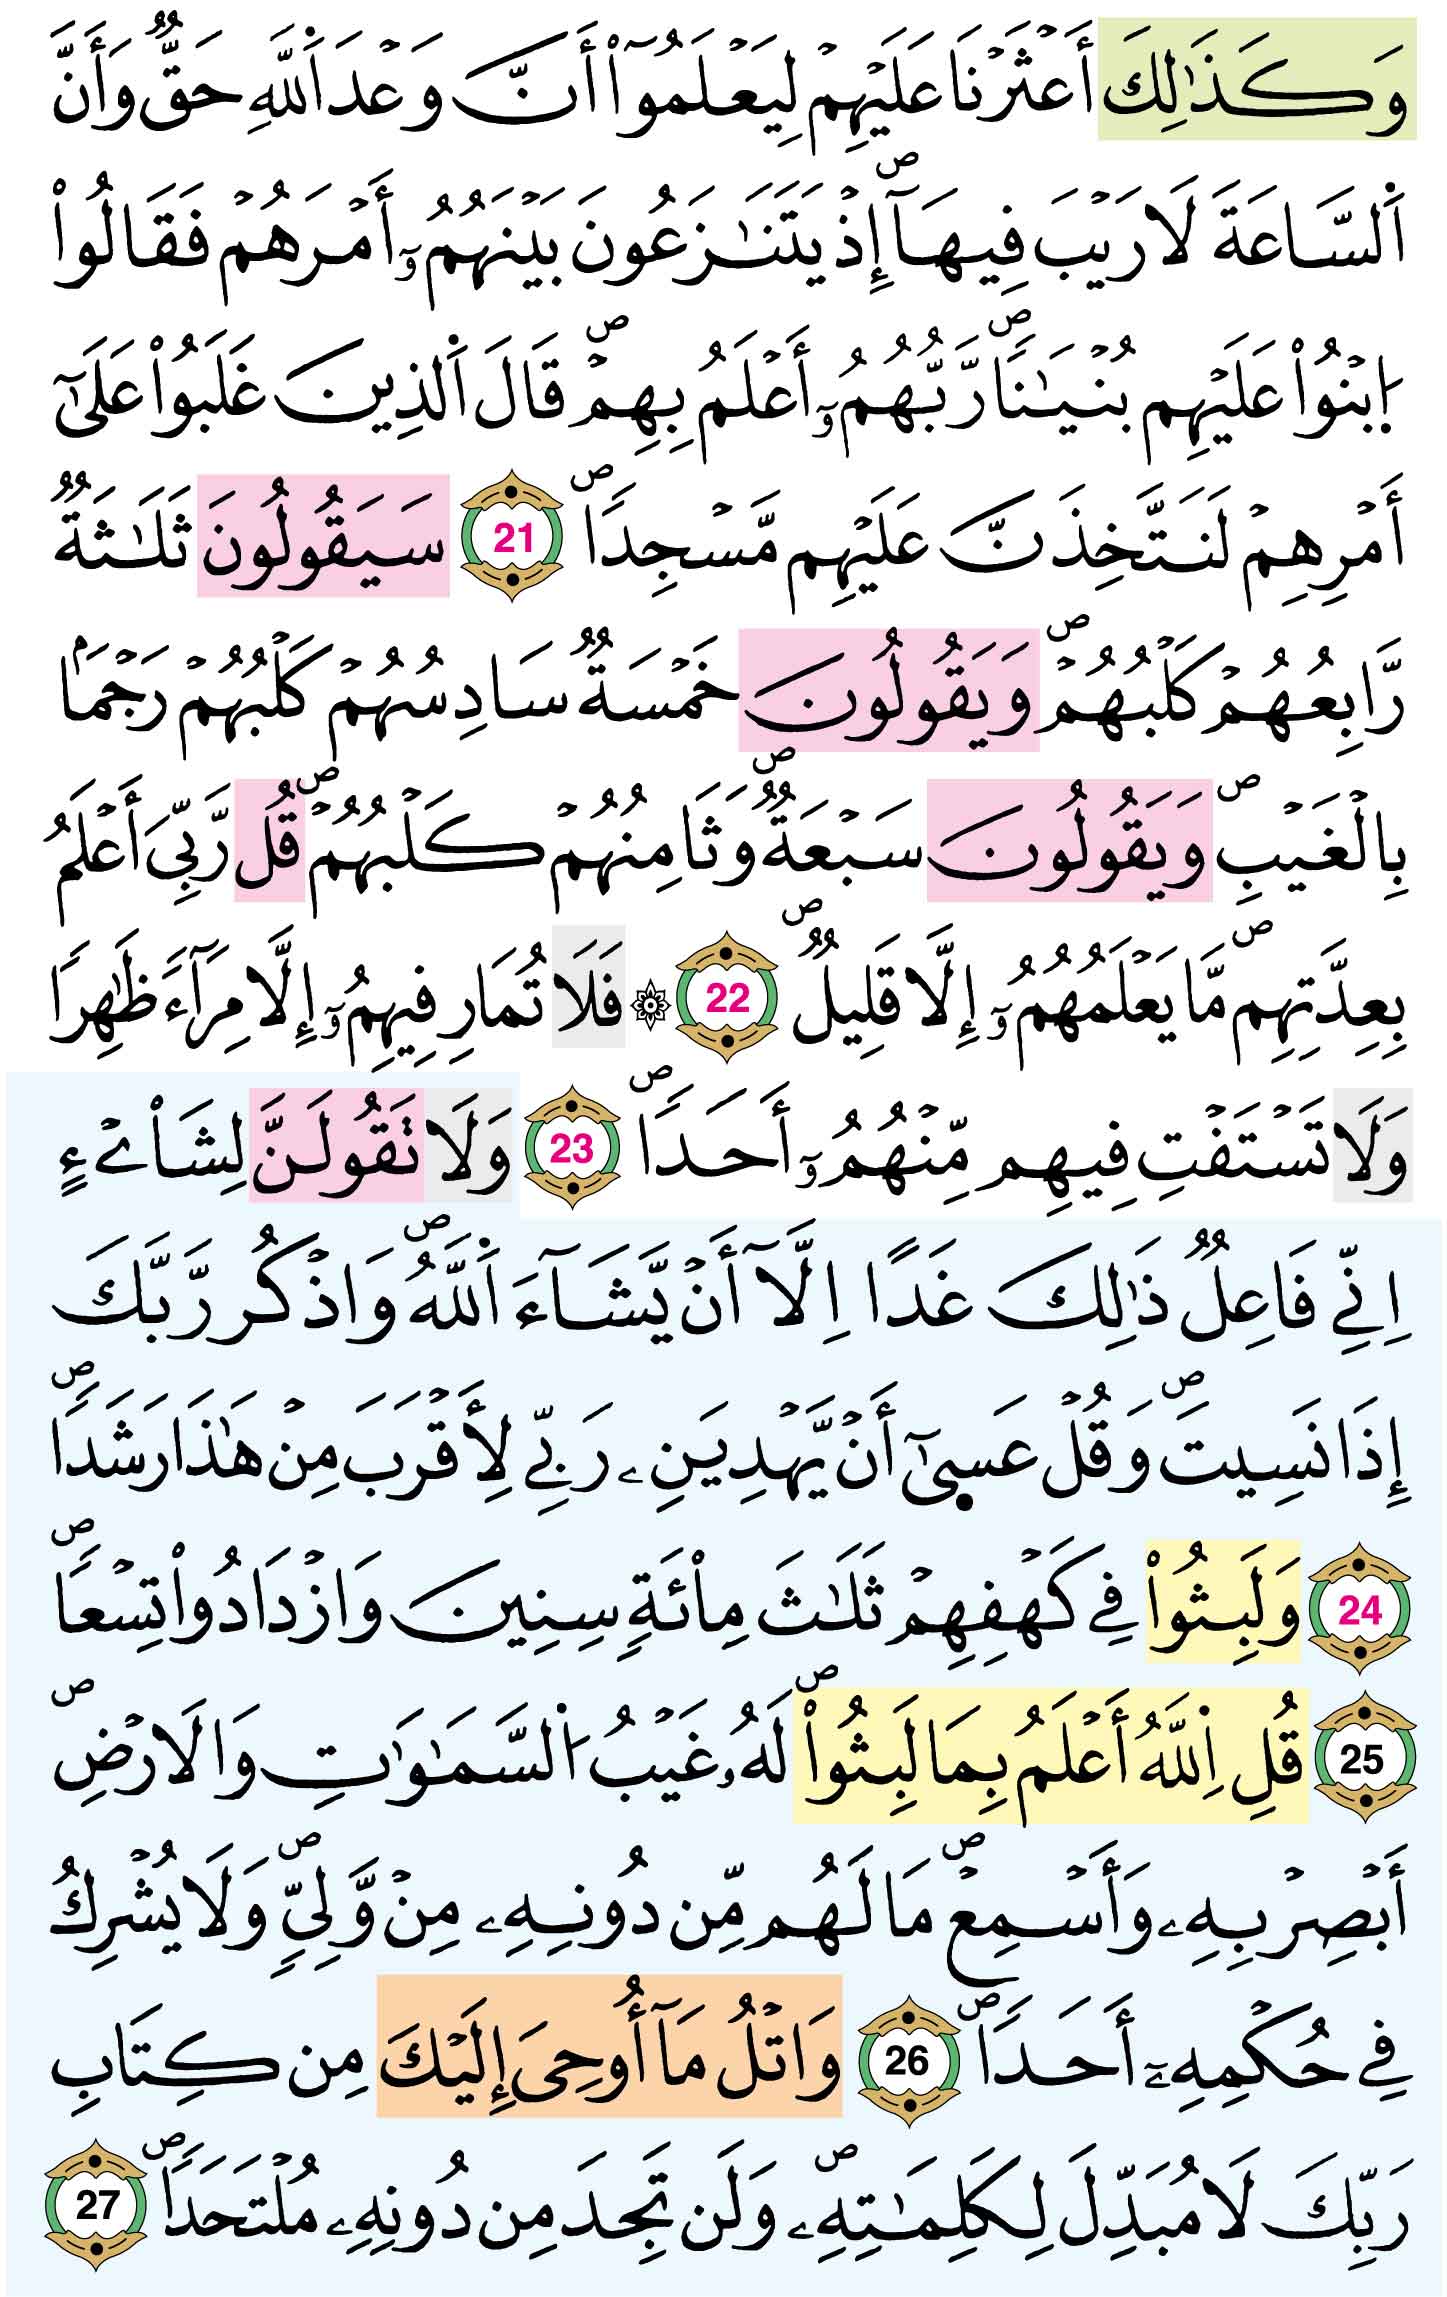 وَكَذَٰلِكَ أَعْثَرْنَا عَلَيْهِمْ لِيَعْلَمُوٓاْ أَنَّ وَعْدَ اَ۬للَّهِ حَقّٞ وَأَنَّ
اَ۬لسَّاعَةَ لَا رَيْبَ فِيهَآۖ إِذْ يَتَنَٰزَعُونَ بَيْنَهُمُۥٓ أَمْرَهُمْ فَقَالُواْ
اُ۪بْنُواْ عَلَيْهِم بُنْيَٰناٗۖ رَّبُّهُمُۥٓ أَعْلَمُ بِهِمْۖ قَالَ اَ۬لذِينَ غَلَبُواْ عَلَىٰٓ
أَمْرِهِمْ لَنَتَّخِذَنَّ عَلَيْهِم مَّسْجِداٗۖ 21 سَيَقُولُونَ ثَلَٰثَةٞ
رَّابِعُهُمْ كَلْبُهُمْۖ وَيَقُولُونَ خَمْسَةٞ سَادِسُهُمْ كَلْبُهُمْ رَجْماَۢ
بِالْغَيْبِۖ وَيَقُولُونَ سَبْعَةٞۖ وَثَامِنُهُمْ كَلْبُهُمْۖ قُل رَّبِّيَ أَعْلَمُ
بِعِدَّتِهِمۖ مَّا يَعْلَمُهُمُۥٓ إِلَّا قَلِيلٞۖ 22 ۞ فَلَا تُمَارِ فِيهِمُۥٓ إِلَّا مِرَآءٗ ظَٰهِراٗ
وَلَا تَسْتَفْتِ فِيهِم مِّنْهُمُۥٓ أَحَداٗۖ 23 وَلَا تَقُولَنَّ لِشَاْےْءٍ
اِنِّے فَاعِلٞ ذَٰلِكَ غَداً اِلَّآ أَنْ يَّشَآءَ اَ۬للَّهُۖ وَاذْكُر رَّبَّكَ
إِذَا نَسِيتَۖ وَقُلْ عَس۪ىٰٓ أَنْ يَّهْدِيَنِۦ رَبِّے لِأَقْرَبَ مِنْ هَٰذَا رَشَداٗۖ
24 وَلَبِثُواْ فِے كَهْفِهِمْ ثَلَٰثَ مِاْئَةٖ سِنِينَ وَازْدَادُواْ تِسْعاٗۖ
25 قُلِ اِ۬للَّهُ أَعْلَمُ بِمَا لَبِثُواْۖ لَهُۥ غَيْبُ اُ۬لسَّمَٰوَٰتِ وَالَارْضِۖ
أَبْصِرْ بِهِۦ وَأَسْمِعْۖ مَا لَهُم مِّن دُونِهِۦ مِنْ وَّلِيّٖۖ وَلَا يُشْرِكُ
فِے حُكْمِهِۦٓ أَحَداٗۖ 26 وَاتْلُ مَآ أُوحِيَ إِلَيْكَ مِن كِتَابِ
رَبِّكَ لَا مُبَدِّلَ لِكَلِمَٰتِهِۦۖ وَلَن تَجِدَ مِن دُونِهِۦ مُلْتَحَداٗۖ 27